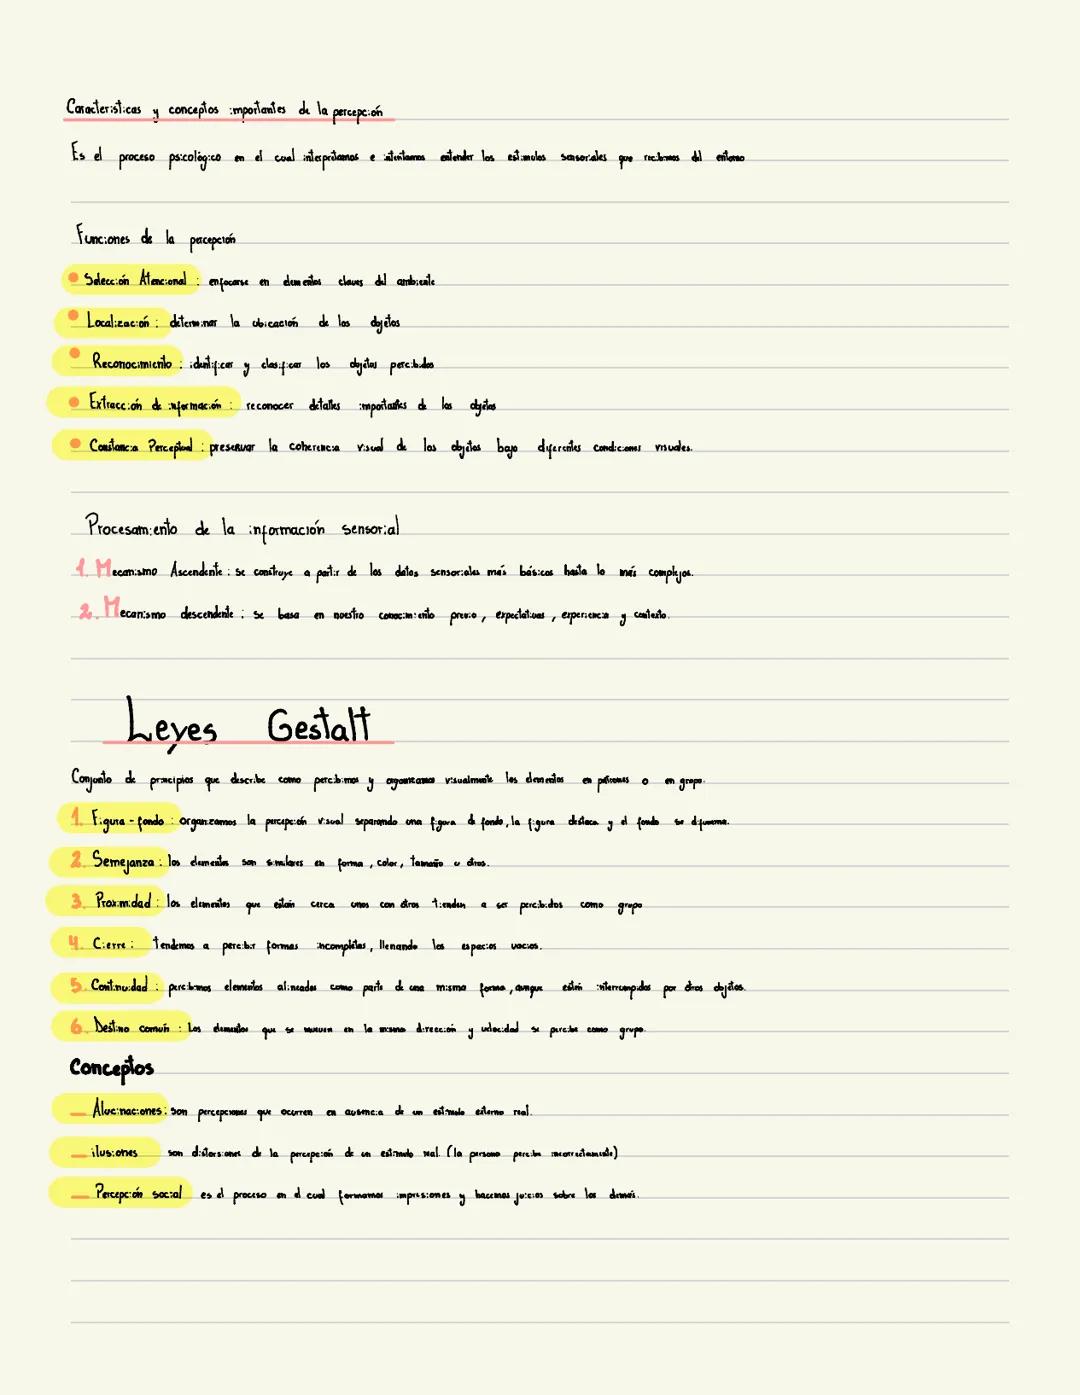 Características y conceptos importantes de la percepción
Es el proceso psicológico en el cual interpretamos e intentamos entender los estímulos sensoriales que recibimos del entorno
Funciones de la percepción
Selección Atencional : enfocarse en elementos claves del ambiente
Localización : determinar la ubicación de los objetos
Reconocimiento : identificar y clasificar los objetos percibidos
Extracción de información : reconocer detalles importantes de los objetos
Constancia Perceptual : preservar la coherencia visual de los objetos bajo diferentes condiciones visuales.
Procesamiento de la información sensorial
1. Mecanismo Ascendente : se construye a partir de los datos sensoriales más básicos hasta lo más complejos.
2. Mecanismo descendente : se basa en nuestro conocimiento previo, expectativas, experiencia y contexto.
Leyes Gestalt
Conjunto de principios que describe como percibimos y organizamos visualmente los elementos en patrones o en grupo.
1. Figura - fondo : organizamos la percepción visual separando una figura de fondo, la figura destaca y el fondo se difumina.
2. Semejanza : los elementos son similares en forma, color, tamaño u otros.
3. Proximidad : los elementos que están cerca unos con otros tienden a ser percibidos como grupo
4. Cierre : Tendemos a percibir formas incompletas, llenando los espacios vacios.
5. Continuidad : percibimos elementos alineados como parte de una misma forma, aunque estén interrumpidos por otros objetos.
6. Destino común : Los elementos que se mueven en la misma dirección y velocidad se percibe como grupo.
Conceptos
— Alucinaciones : son percepciones que ocurren en ausencia de un estímulo externo real.
— ilusiones son distorsiones de la percepción de un estímulo real. (la persona percibe incorrectamente)
— Percepción social es el proceso en el cual formamos impresiones y hacemos juicios sobre los demás.